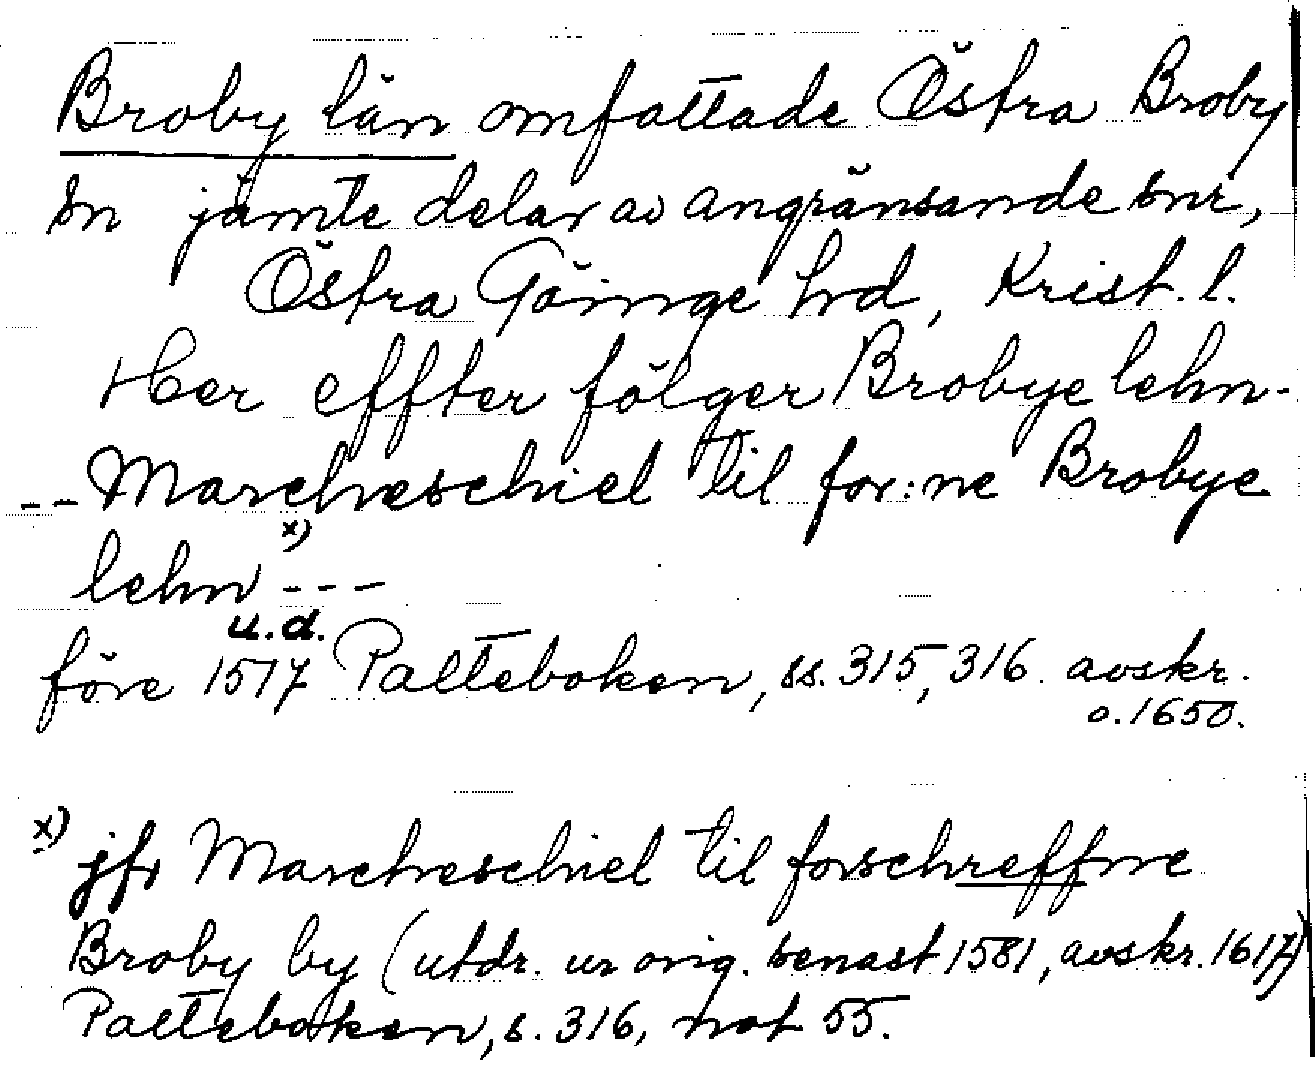 Broby län omfattade Östra Broby
sn jämte delar av angränsande snr,
Östra Göinge hrd, Krist. l.
Her effter fölger Brobye lehn-
-- Marcheschiel til for:ne Brobye
lehn x) ---
u.d.
före 1517 Palteboken, ss. 315, 316. avskr.
o. 1650.
x) jfr Marcheschiel til forschreffne
Broby by (utdr. ur orig. senast 1581, avskr. 1617)
Palteboken, s. 316, not 55.